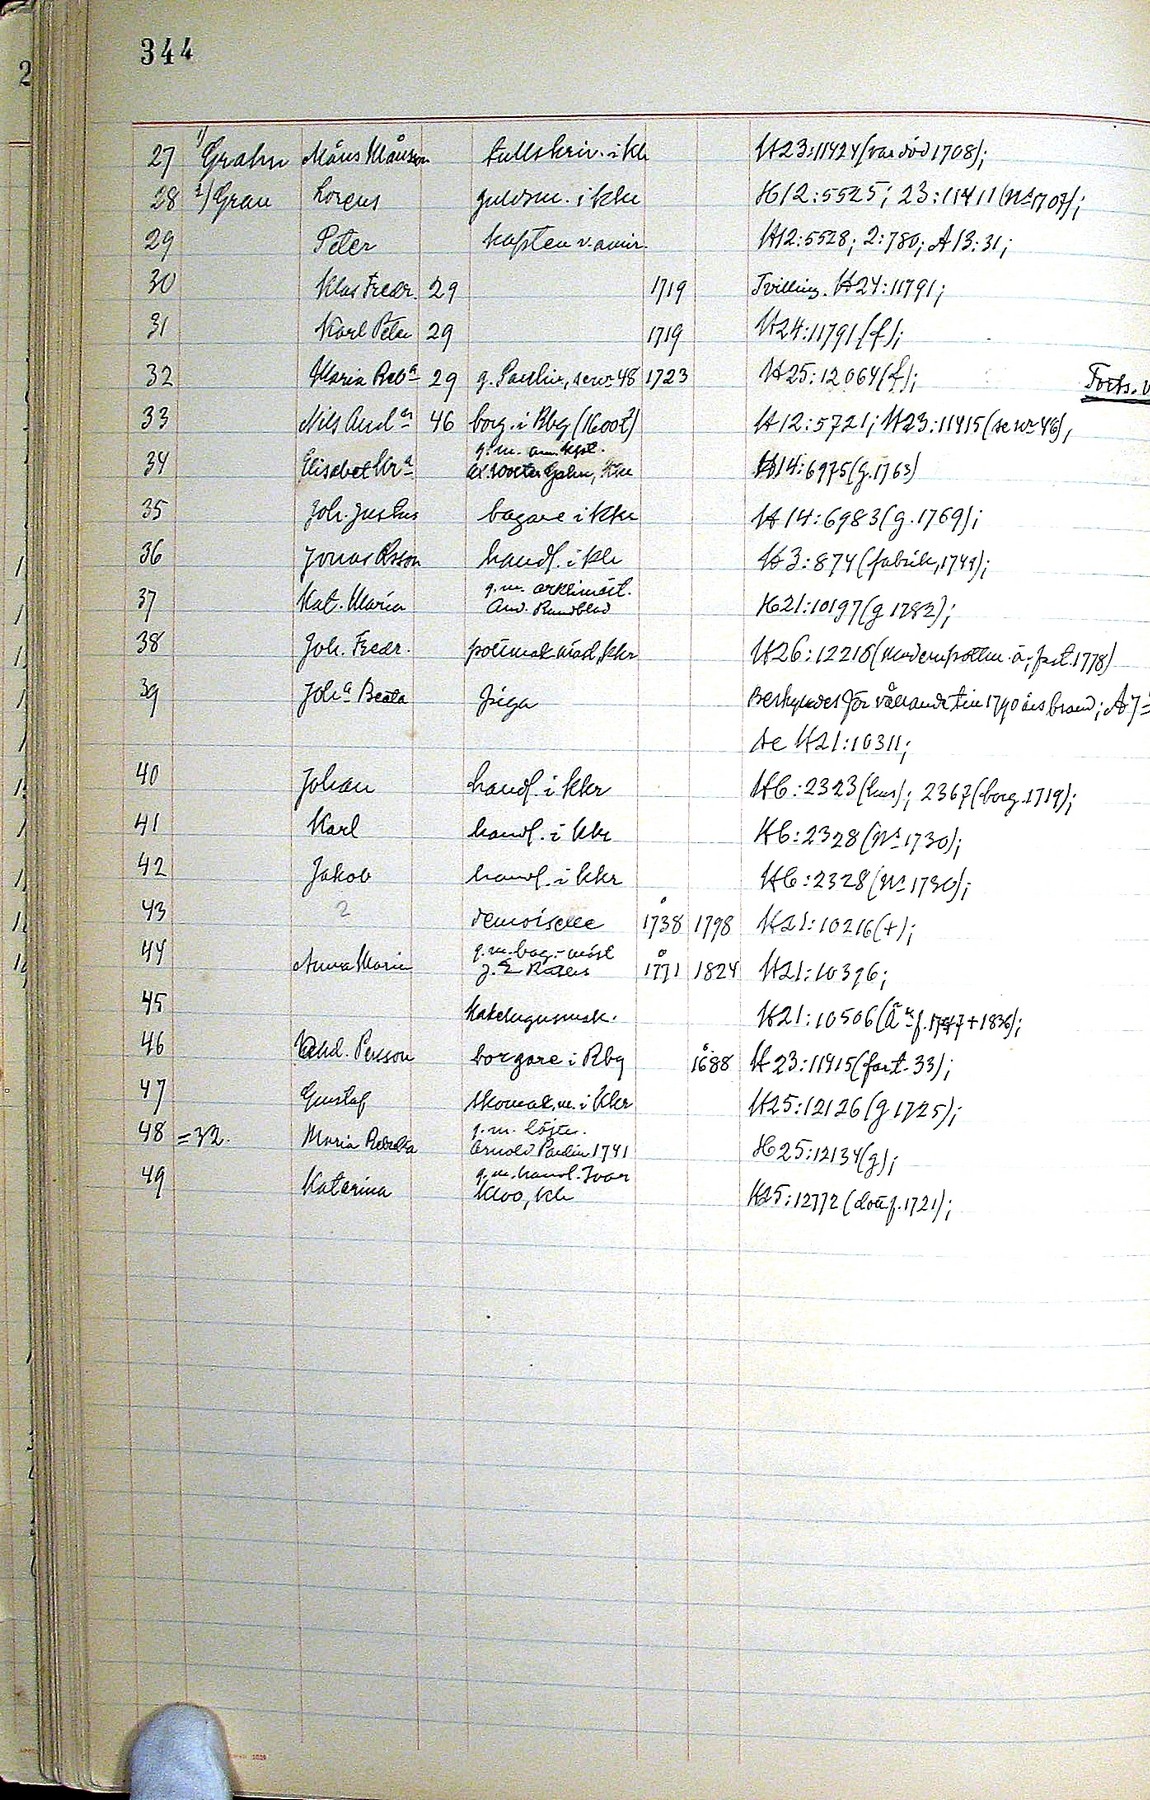 344
27 1) Grahn Måns Månsson tullskriv. i Kk H23:11424 (var död 1708);
28 2) Gran Lorens guldsm. i Kkr H12:5525; 23:11411 (N:r 1707);
29 Peter kapten v. amir. H12:5528; 2:780; A13:31;
30 Klas Fredr. 29 1719 Tvilling. H24:11791;
31 Karl Peter 29 1719 H24:11791 (f);
32 Maria Reba 29 g. Paulin, se nr 48 1723 H25:12064 (f); Forts.
33 Nils And:n 46 borg. i Rbg (Koot?) H12:5721; H23:11415 (se nr 46),
g.m. am.
34 Elisabet Kra Gahn, Kkr H14:6975 (g. 1763)
35 Joh. Justus bagare i Kkr H14:6983 (g. 1769);
36 Jonas Olsson handl. i Kk H3:874 (fabrik, 1741);
g.m. arklimäst.
37 Kat. Maria And. Rundblad H21:10197 (g 1782);
38 Joh. Fredr. pottmak.mäst, Kkr H26:12216 ( fast. 1778)
39 Joh:a Beata piga Beskylldes för vållande till 1790 års brand; A7
Se H21:10311;
40 Johan handl. i Kkr H6:2323 (hus); 2367 (borg. 1719);
41 Karl handl. i Kkr H6:2328 (N:r 1730);
42 Jakob handl. i Kkr H6:2328 (N:r 1730);
43 ? demoiselle 1738 1798 H21:10216 (+);
g.m. bag.-mäst
44 Anna Maria J. E. 1771 1824 H21:10396;
45 Kakelugnsmak. H21:10506 (Ä f. 1747 + 1836);
46 And. Persson borgare i Rbg 1688 H23:11415 (fart. 33);
47 Gustaf skomak.m. i Kkr H25:12126 (g 1725);
g.m. löjtn.
48 =32. Maria Rebecka Arnold Paulin 1741 H25:12134 (g);
g.m. handl. Ivar
49 Katarina Kloo, Kk H25:12772 (dott f. 1721);